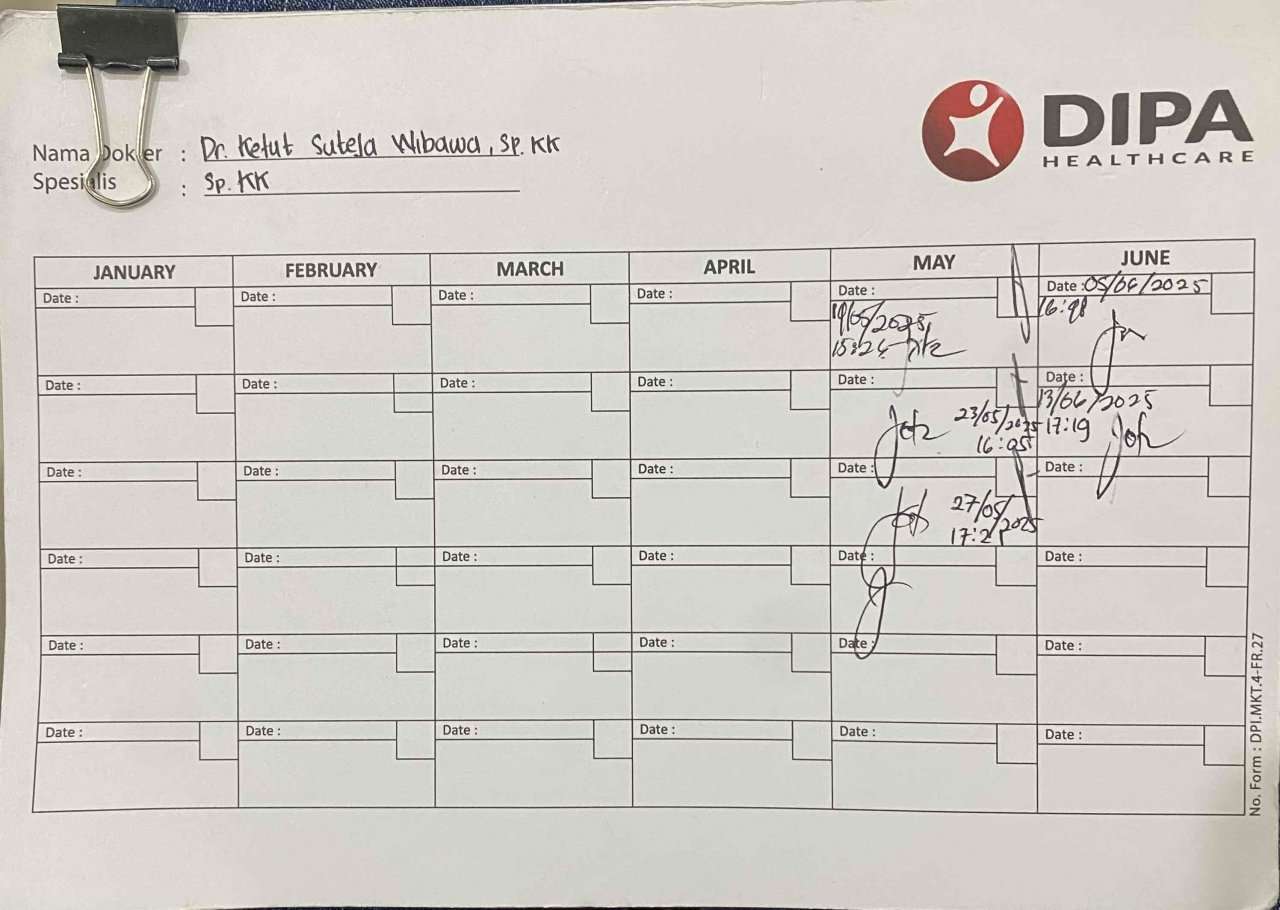 DIPA
HEALTHCARE
Nama Dokter : Dr. Ketut Suteja Wibawa, Sp. KK
Spesialis : Sp. KK
JANUARY FEBRUARY MARCH APRIL MAY JUNE
Date : Date : Date : Date : Date : Date : 05/06/2025
19/05/2025
Date : Date : Date : Date : Date : Date :
23/05/2025 13/06/2025
16:05 17:19
Date : Date : Date : Date : Date : Date :
27/05/2025
Date : Date : Date : Date : Date : Date :
Date : Date : Date : Date : Date : Date :
Date : Date : Date : Date : Date : Date :
No. Form : DPI.MKT.4-FR.27